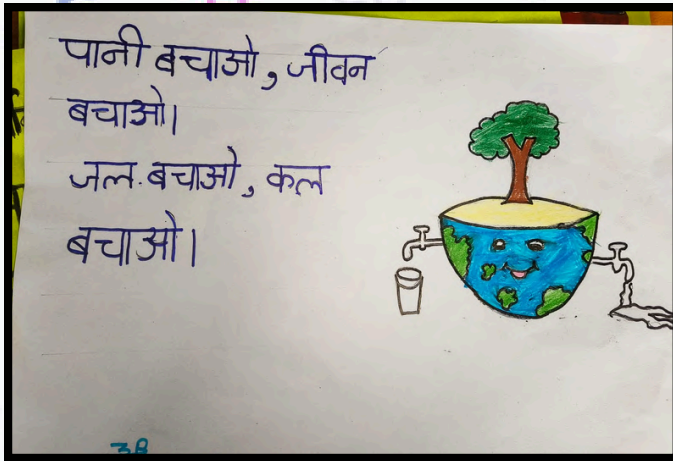 पानी बचाओ, जीवन
बचाओ।
जल बचाओ, कल
बचाओ।